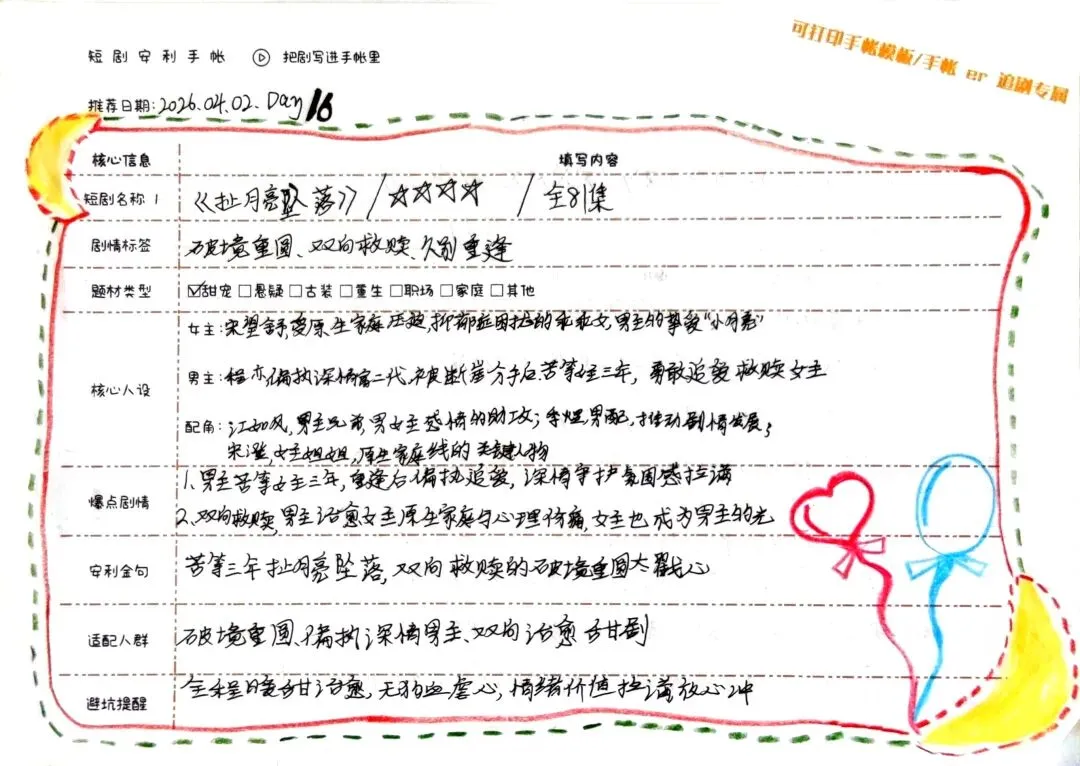 可打印手帐模板/手帐 er 追剧专属
短剧安利手帐 把剧写进手帐里
推荐日期:2026.04.02. Day16
核心信息 填写内容
短剧名称 1 《扯月亮坠落》/☆☆☆☆ / 全81集
剧情标签 破境重圆、双向救赎、久别重逢
题材类型 ☑甜宠□悬疑□古装□重生□职场□家庭□其他
核心人设
女主:宋望舒,受原生家庭压迫,抑郁症困扰的乖乖女,男主的挚爱“小月亮”
男主:程亦,偏执深情富二代,被断崖分手后苦等女主三年,勇敢追爱救赎女主
配角:江如风,男主兄弟,男女主感情的助攻;季煜,男配,推动剧情发展;
宋滢,女主姐姐,原生家庭线的关键人物
爆点剧情
1.男主苦等女主三年,重逢后偏执追爱,深情守护氛围感拉满
2.双向救赎,男主治愈女主原生家庭与心理伤痛,女主也成为男主的光
安利金句 苦等三年扯月亮坠落,双向救赎的破境重圆太戳心
适配人群 破境重圆、偏执深情男主、双向治愈甜剧
避坑提醒 全程暖甜治愈,无狗血虐心,情绪价值拉满放心冲